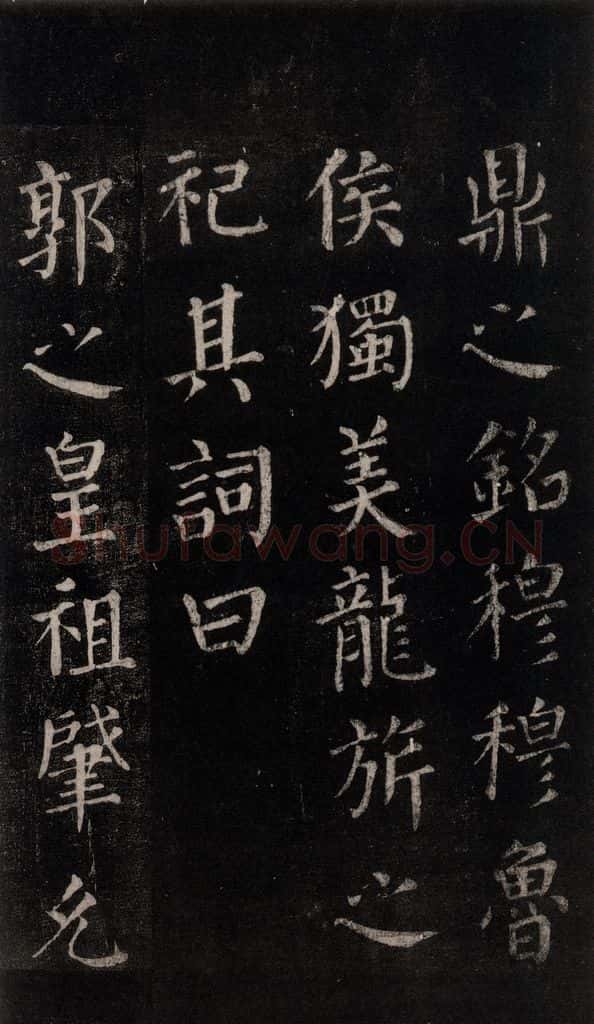 鼎之銘穆穆魯
侯獨美龍旂之
祀其詞曰
郭之皇祖肇允
Shufawang.CN